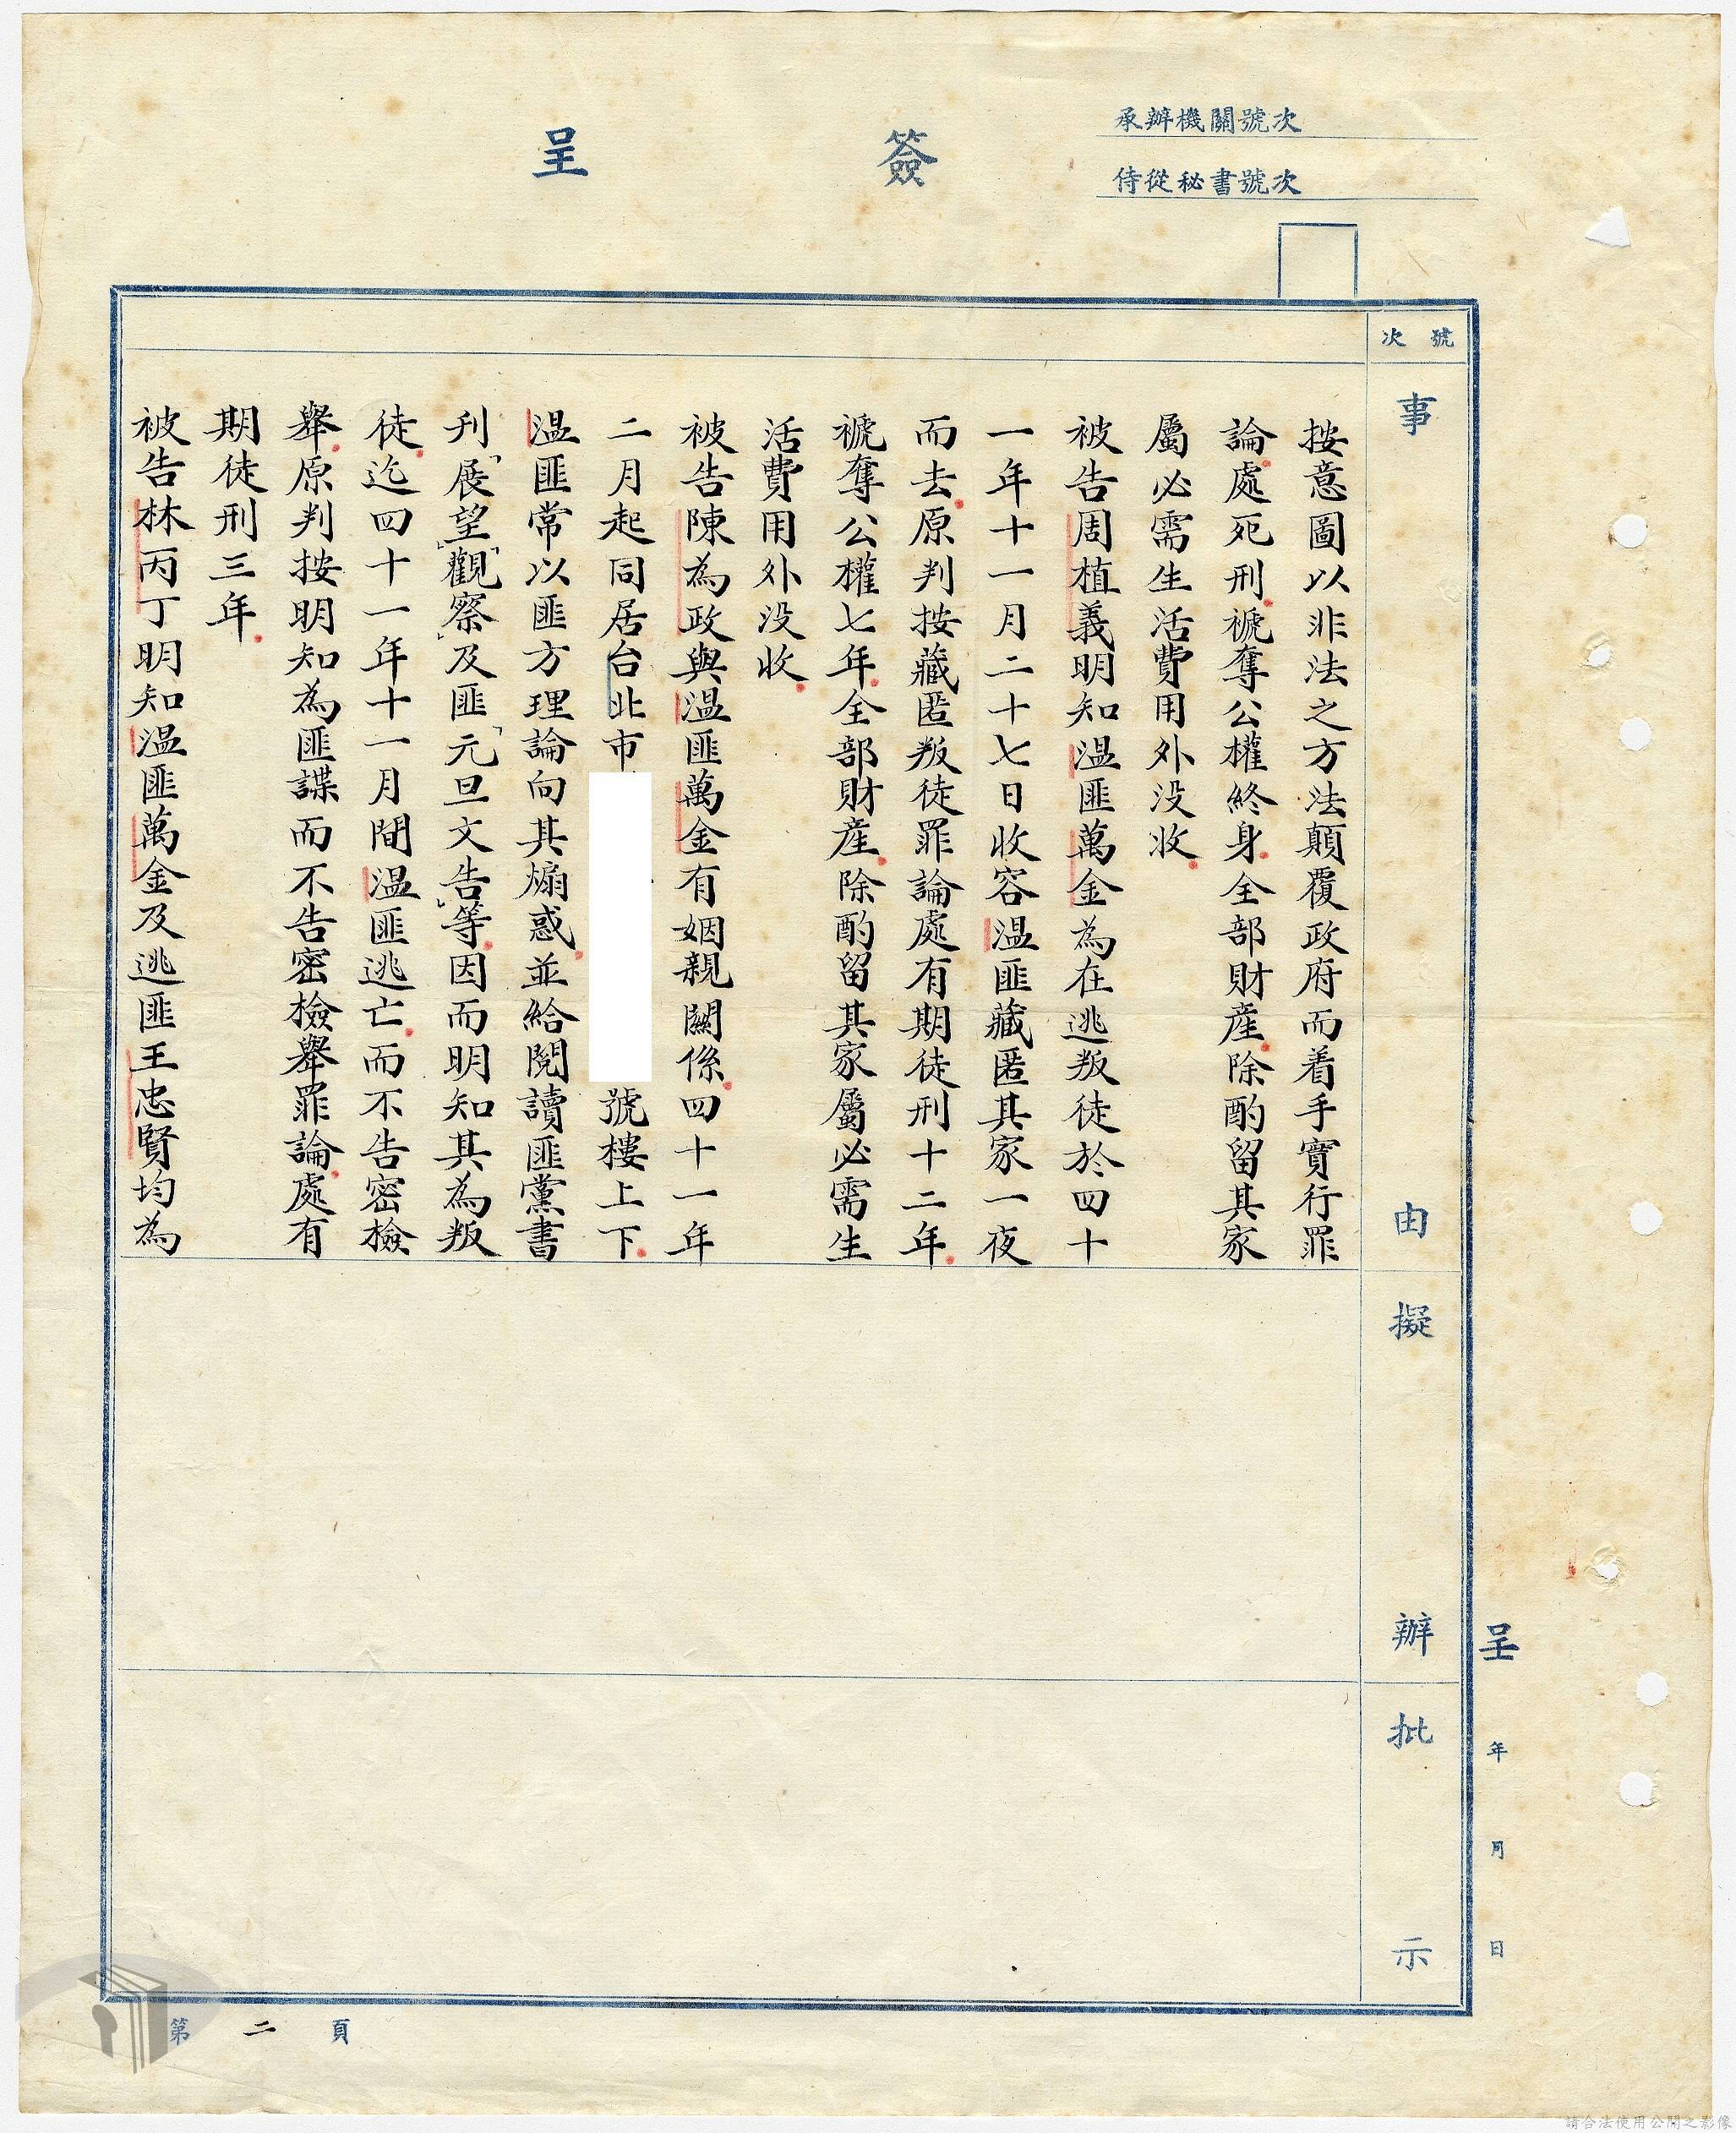 承辦機關號次
侍從秘書號次
簽呈
號次
事由
擬辦
批示
按意圖以非法之方法顛覆政府而着手實行罪
論處死刑褫奪公權終身全部財產除酌留其家
屬必需生活費用外沒收
被告周植義明知溫匪萬金為在逃叛徒於四十
一年十一月二十七日收容溫匪藏匿其家一夜
而去原判按藏匿叛徒罪論處有期徒刑十二年
褫奪公權七年全部財產除酌留其家屬必需生
活費用外沒收
被告陳為政與溫匪萬金有姻親關係四十一年
二月起同居台北市
號樓上下
溫匪常以匪方理論向其煽惑並給閱讀匪黨書
刊「展望」「觀察」及匪「元旦文告」等因而明知其為叛
徒迄四十一年十一月間溫匪逃亡而不告密檢
舉原判按明知為匪諜而不告密檢舉罪論處有
期徒刑三年
被告林丙丁明知溫匪萬金及逃匪王忠賢均為
呈 年 月 日
第二頁
請合法使用公開之影像